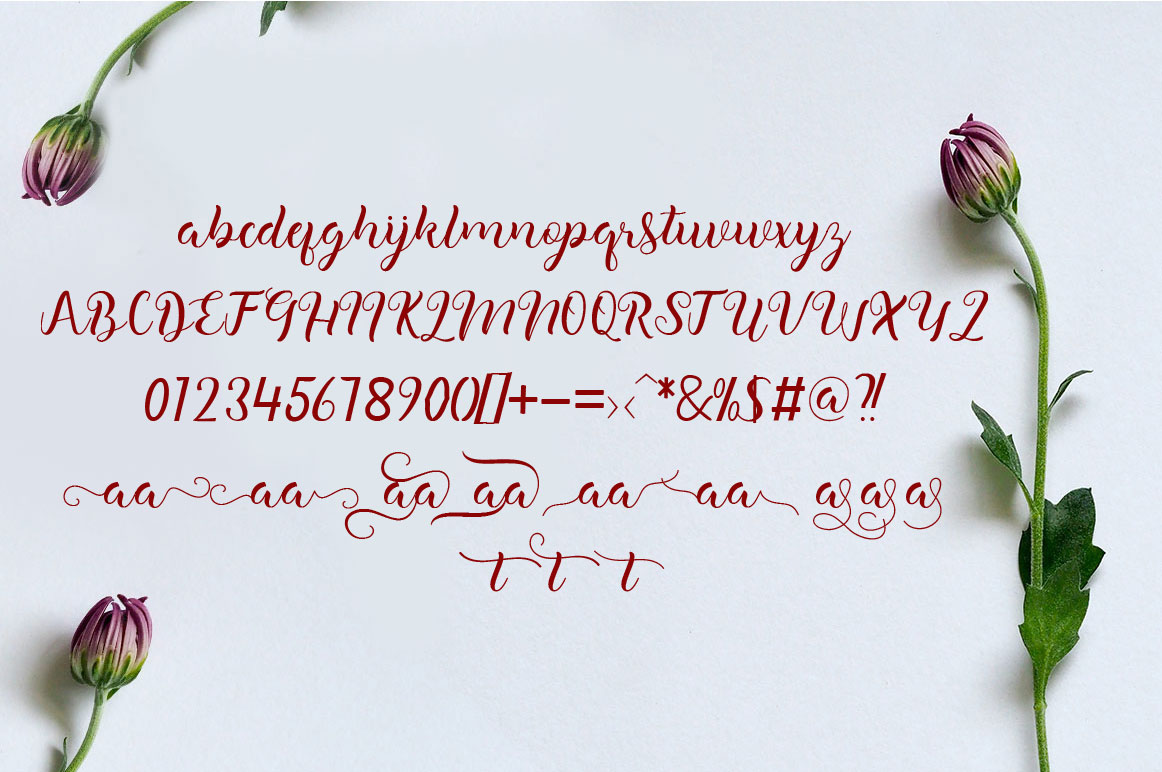 abcdefghijklmnopqrstuvwxyz
ABCDEFGHIJKLMNOQRSTUVWXYZ
01234567890()[]+-=›‹^*&%$#@?!
aa aa aa aa aa aa as as as
t t t